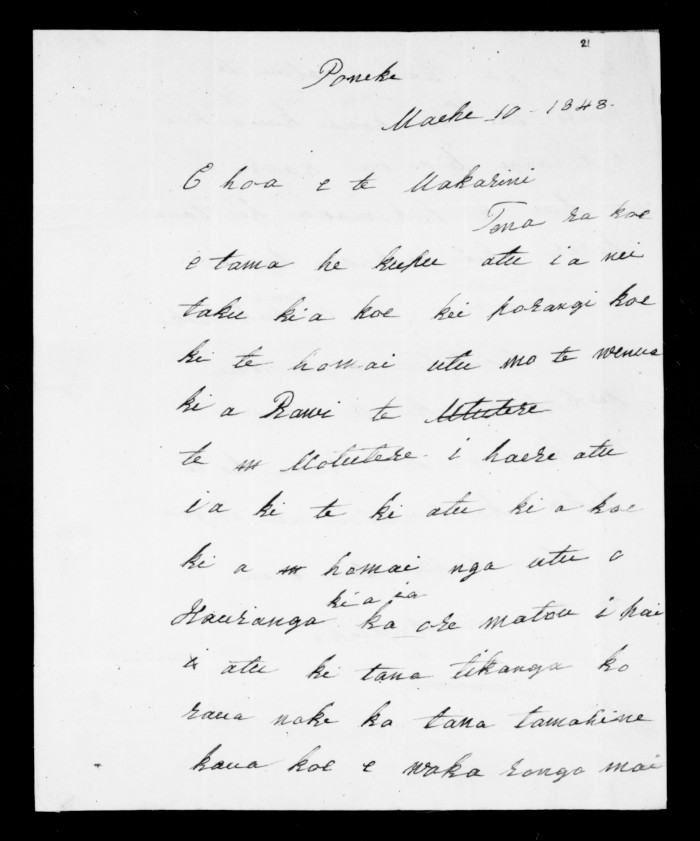 21
Poneke
Maehe 10 - 1848.
E hoa e te Makarini
Tena ra koe
e tama he kupu atu ia nei
taku kia koe kei porangi koe
ki te homai utu mo te wenua
ki a Rawi te Mtutere
te m Motutere. i haere atu
ia ki te ki atu ki a koe
ki a m homai nga utu o
kia ia
Hauranga ka ore matou i pai
i atu ki tana tikanga ko
raua nake ko tana tamahine
kaua koe e waka rongo mai